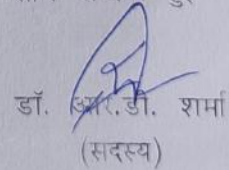 डॉ. आर.डी. शर्मा
(सदस्य)